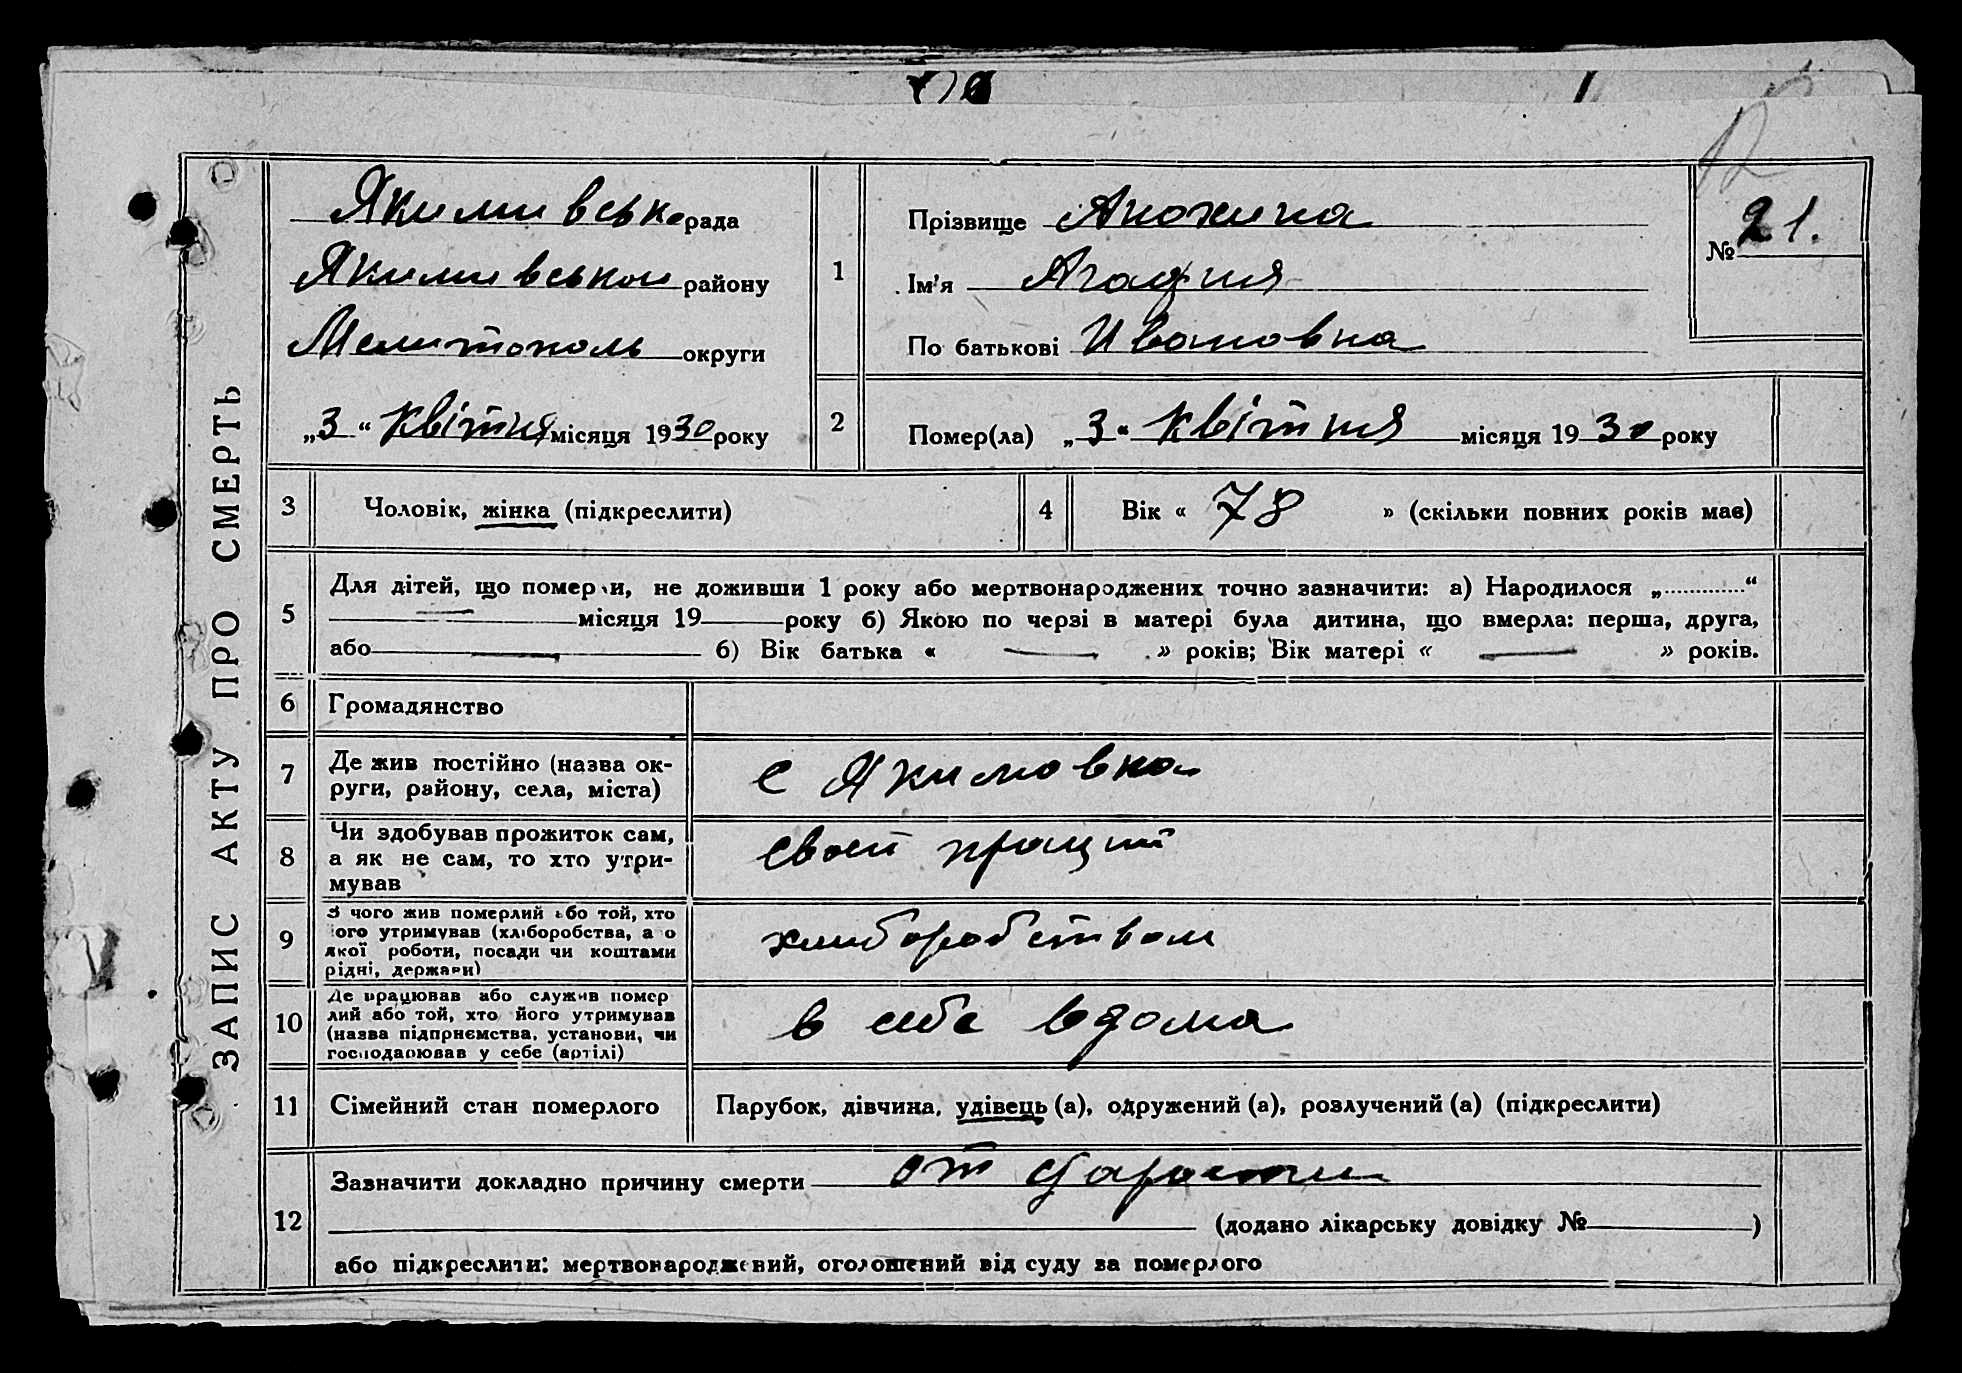 ЗАПИС АКТУ ПРО СМЕРТЬ
Якимивська рада
Якимивськои району
Мелитополь округи
„3“ Квітня місяця 1930 року
1
Прізвище Анохина
Ім'я Агафия
По батькові Ивановна
№ 21.
2
Помер(ла) „3“ Квітня місяця 1930 року
3
Чоловік, жінка (підкреслити)
4
Вік « 78 » (скільки повних років має)
5
Для дітей, що померли, не доживши 1 року або мертвонароджених точно зазначити: а) Народилося „.............“
місяця 19 року б) Якою по черзі в матері була дитина, що вмерла: перша, друга,
або б) Вік батька « » років; Вік матері « » років.
6
Громадянство
7
Де жив постійно (назва ок-
руги, району, села, міста)
с Якимовка
8
Чи здобував прожиток сам,
а як не сам, то хто утри-
мував
своей праций
9
З чого жив померлий або той, хто
його утримував (хліборобства, а о
якої роботи, посади чи коштами
рідні, держави)
хлиборобством
10
Де працював або служив помер
лий або той, хто його утримував
(назва підприємства, установи, чи
господарював у себе (артілі)
в себе вдома
11
Сімейний стан померлого
Парубок, дівчина, удівець (а), одружений (а), розлучений (а) (підкреслити)
12
Зазначити докладно причину смерти от старости
(додано лікарську довідку № )
або підкреслити: мертвонароджений, оголошений від суду за померлого